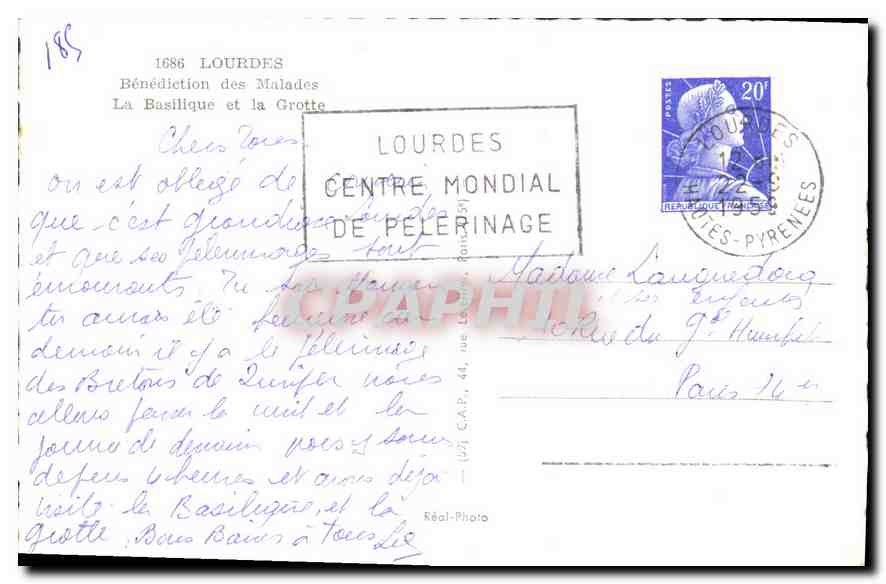 185
1686 LOURDES
Bénédiction des Malades
La Basilique et la Grotte
LOURDES
CENTRE MONDIAL
DE PÈLERINAGE
POSTES
20F
REPUBLIQUE FRANÇAISE
LOURDES
22
195
HTES-PYRENEES
Chers Tous
on est obligé de
que c'est grandiose Lourdes
et que ses Pèlerinages sont
émouvants. Tu sais Maman
tu aurais été heureuse car
demain il y a le Pèlerinage
des Bretons de Quimper nous
allons passer la nuit et la
journée de demain nous y sommes
depuis 4 heures et avons déjà
visité la Basilique et la
grotte. Bons Baisers à tous
Madame Languedocq
et ses enfants
Rue du Gal Humbert
Paris 14 er
(65) C.A.P., 44, rue Letellier, Paris (15e)
Réal-Photo
CPAPHIL